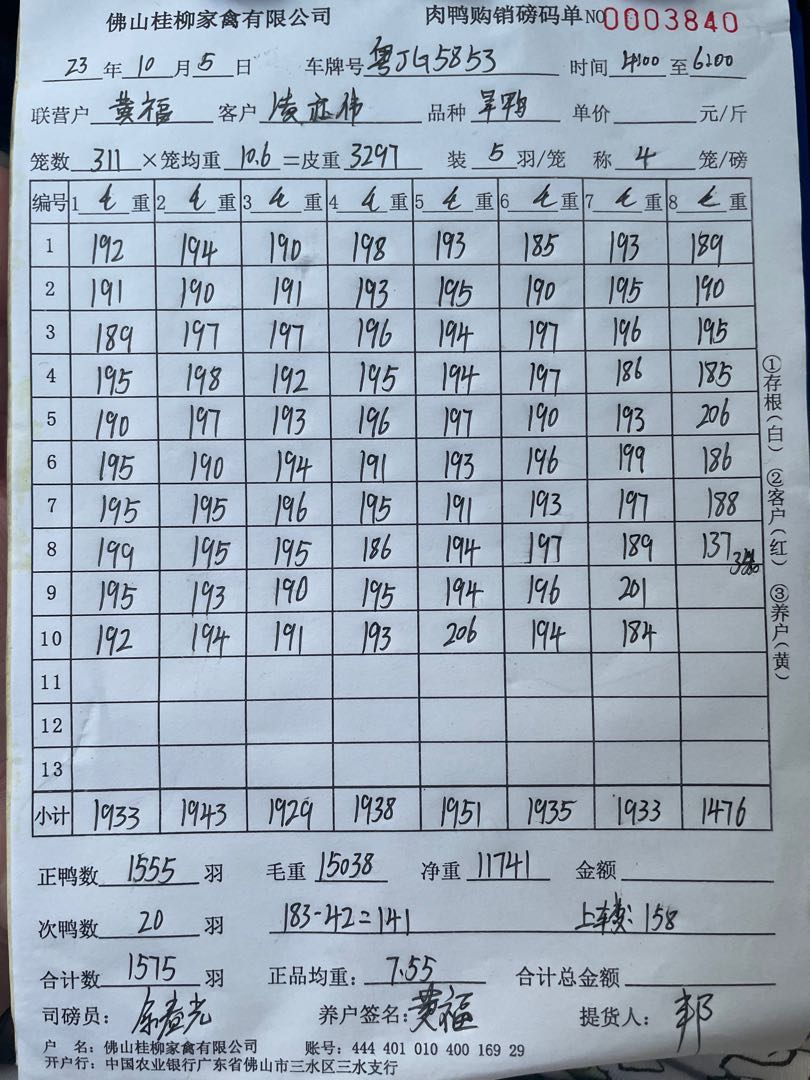 佛山桂柳家禽有限公司 肉鸭购销磅码单 NO 0003840
23 年 10 月 5 日 车牌号 粤JG5853 时间 4:00 至 6:00
联营户 黄福 客户 品种 单价 元/斤
笼数 311 ×笼均重 10.6 =皮重 3297 装 5 羽/笼 称 4 笼/磅
编号 1 毛 重 2 毛 重 3 毛 重 4 毛 重 5 毛 重 6 毛 重 7 毛 重 8 毛 重
1 192 194 190 198 193 185 193 189
2 191 190 191 193 195 190 195 190
3 189 197 197 196 194 197 196 195
4 195 198 192 195 194 197 186 185
5 190 197 193 196 197 190 193 206
6 195 190 194 191 193 196 199 186
7 195 195 196 195 191 193 197 188
8 199 195 195 186 194 197 189 137
9 195 193 190 195 194 196 201
10 192 194 191 193 206 194 184
11
12
13
小计 1933 1943 1929 1938 1951 1935 1933 1476
①存根(白) ②客户(红) ③养户(黄)
正鸭数 1555 羽 毛重 15038 净重 11741 金额
次鸭数 20 羽 183-42=141 上车费: 158
合计数 1575 羽 正品均重: 7.55 合计总金额
司磅员: 养户签名: 黄福 提货人: 邦
户 名: 佛山桂柳家禽有限公司 账号: 444 401 010 400 169 29
开户行: 中国农业银行广东省佛山市三水区三水支行